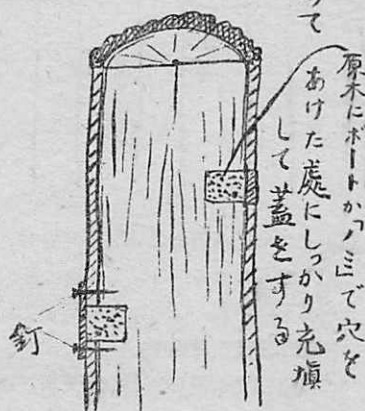 原木にボートか「ノミ」で穴を
あけた處にしっかり充填
して蓋をする
って
釘